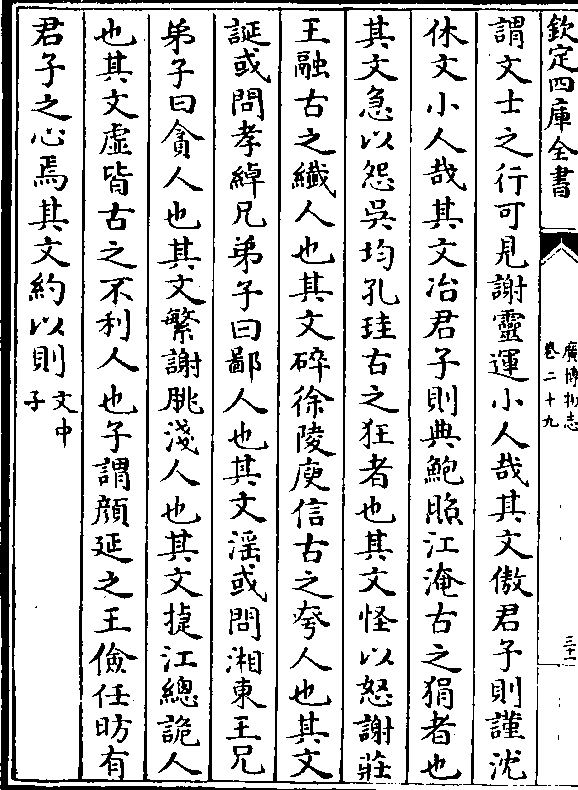 欽定四庫全書
廣博物志
卷二十九
三十一
謂文士之行可見謝靈運小人哉其文傲君子則謹沈
休文小人哉其文冶君子則典鮑照江淹古之狷者也
其文急以怨吳均孔珪古之狂者也其文怪以怒謝莊
王融古之纖人也其文碎徐陵庾信古之夸人也其文
誕或問孝綽兄弟子曰鄙人也其文滛或問湘東王兄
弟子曰貪人也其文繁謝朓淺人也其文㨗江總詭人
也其文虛皆古之不利人也子謂顔延之王儉任昉有
君子之心焉其文約以則文中
子